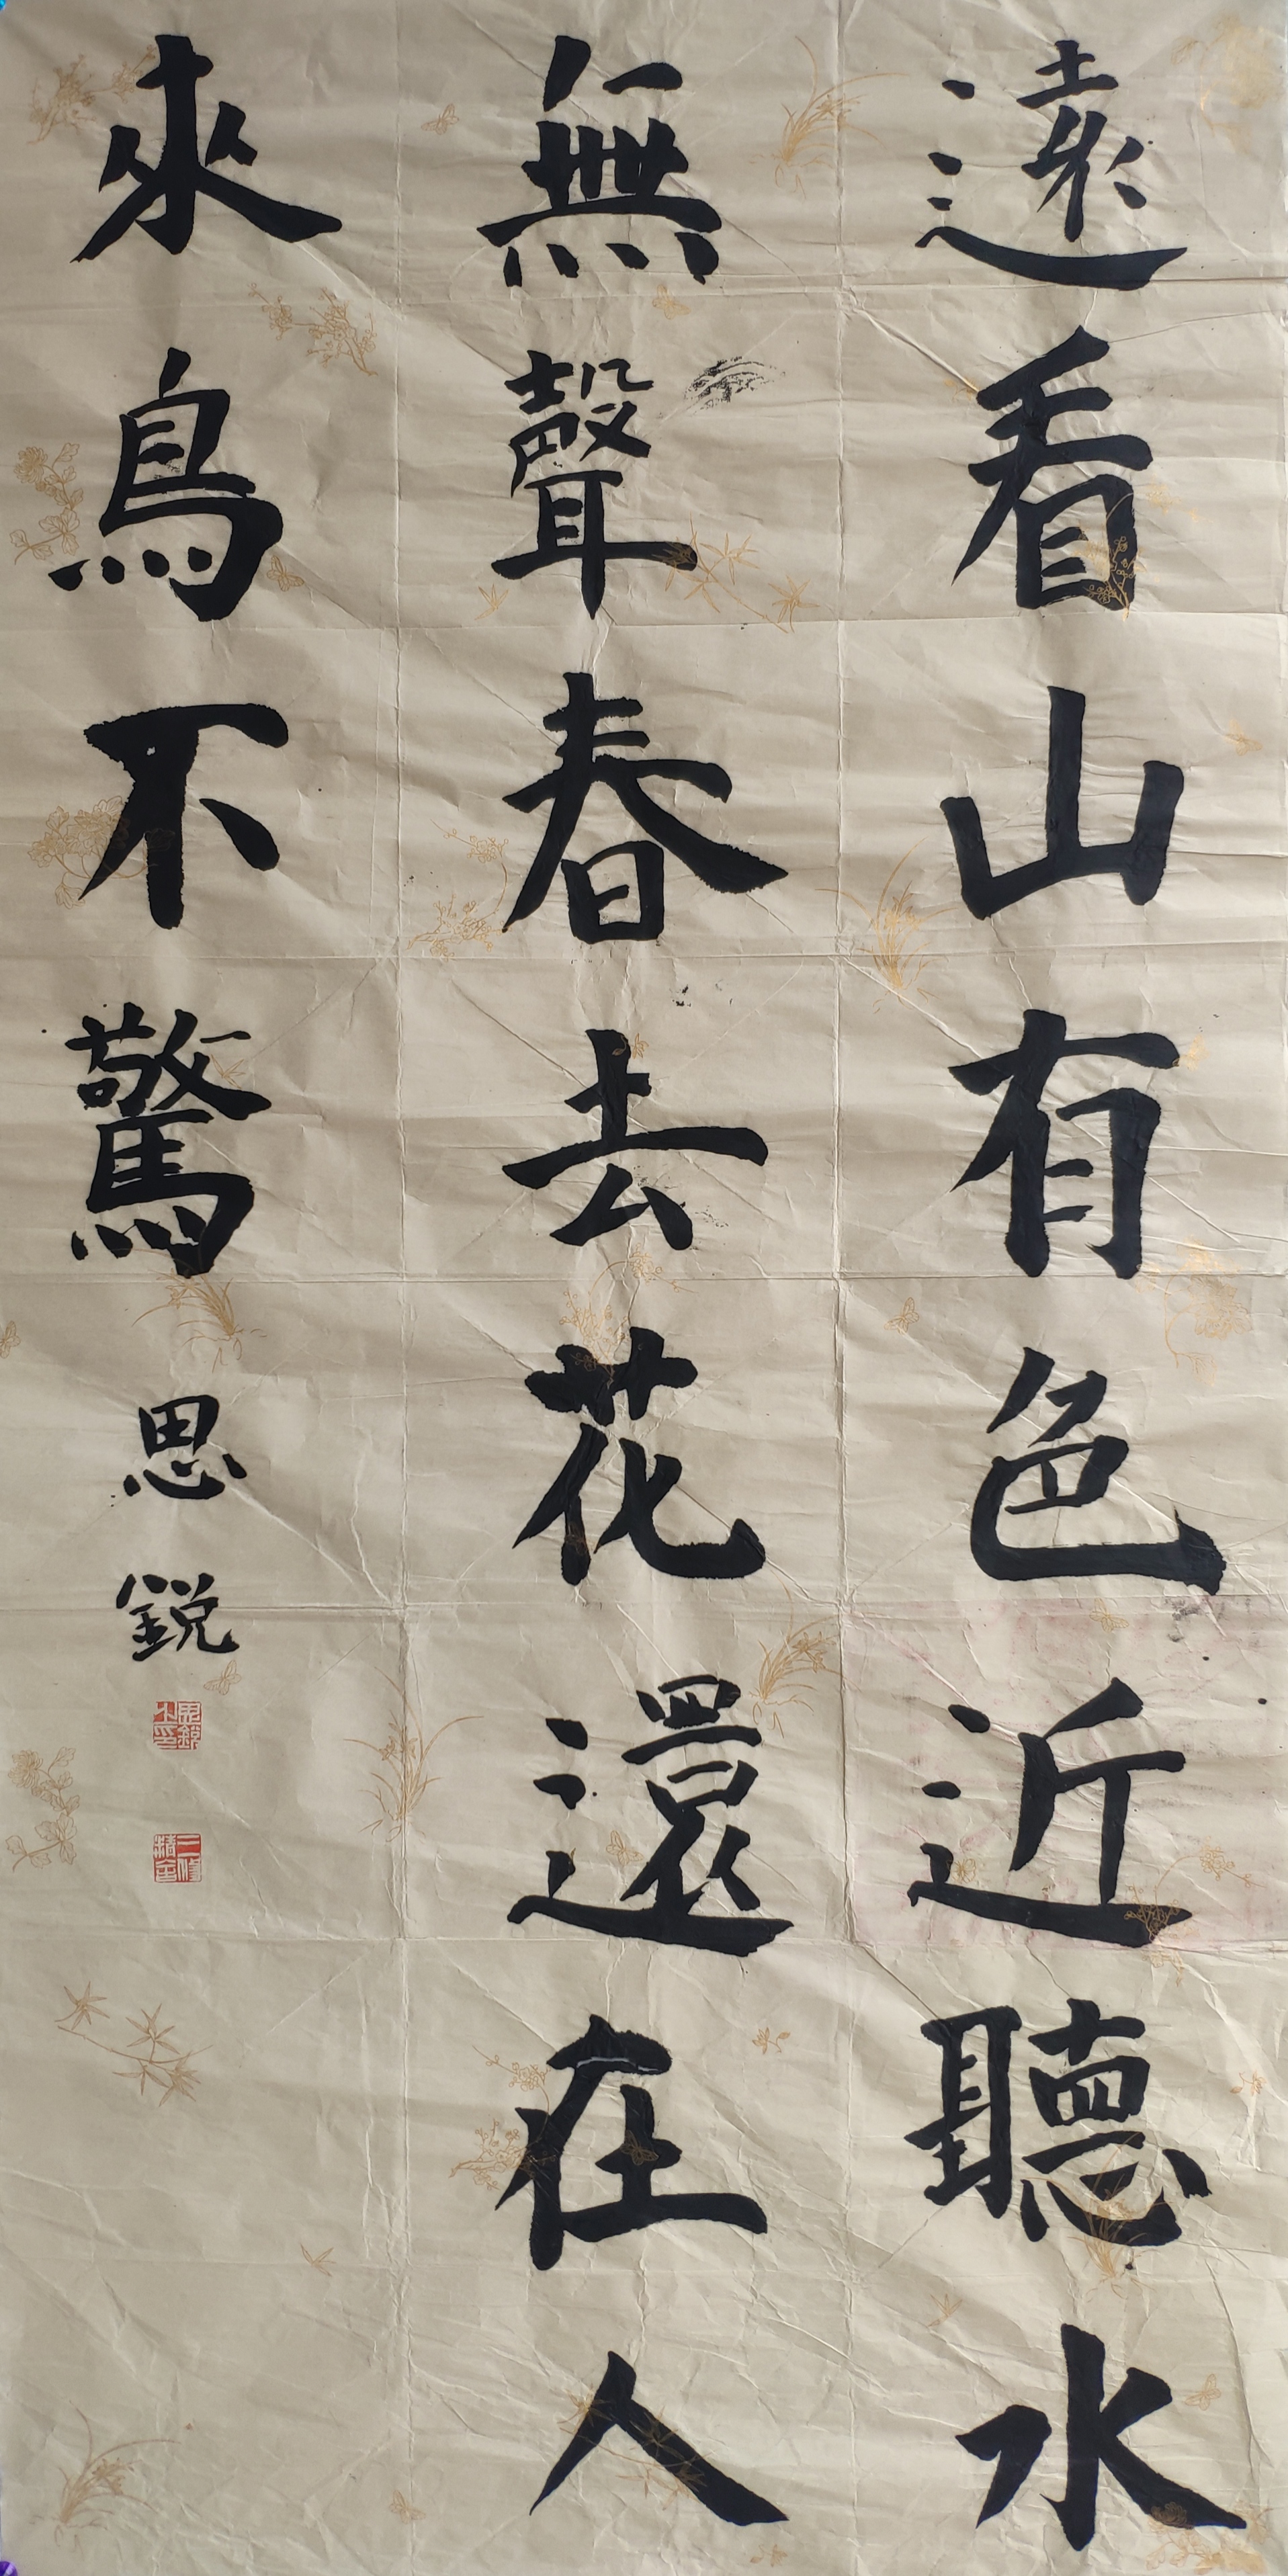 遠看山有色近聽水
無聲春去花還在人
來鳥不驚思鋭